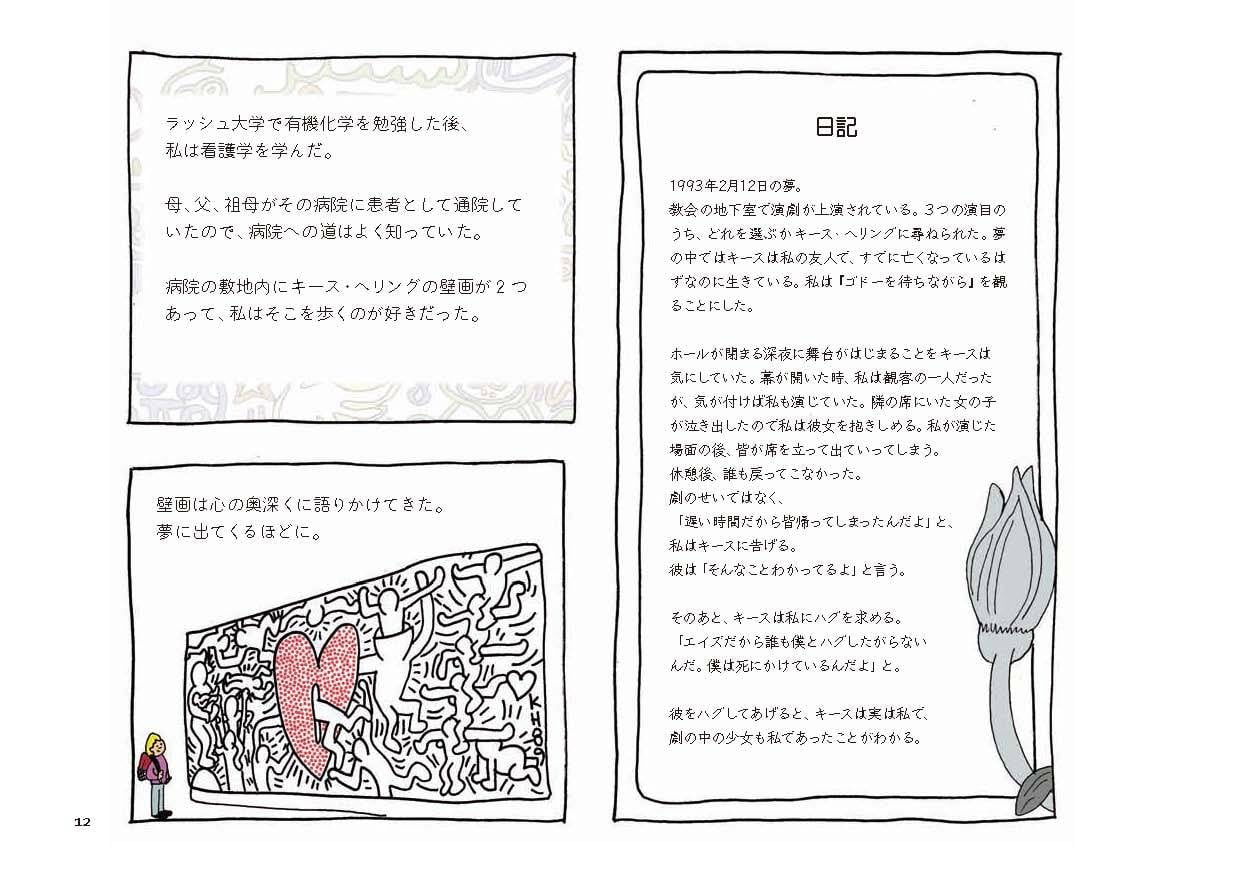 ラッシュ大学で有機化学を勉強した後、
私は看護学を学んだ。
母、父、祖母がその病院に患者として通院して
いたので、病院への道はよく知っていた。
病院の敷地内にキース・ヘリングの壁画が2つ
あって、私はそこを歩くのが好きだった。
壁画は心の奥深くに語りかけてきた。
夢に出てくるほどに。
12
日記
1993年2月12日の夢。
教会の地下室で演劇が上演されている。3つの演目の
うち、どれを選ぶかキース・ヘリングに尋ねられた。夢
の中ではキースは私の友人で、すでに亡くなっているは
ずなのに生きている。私は『ゴドーを待ちながら』を観
ることにした。
ホールが閉まる深夜に舞台がはじまることをキースは
気にしていた。幕が開いた時、私は観客の一人だった
が、気が付けば私も演じていた。隣の席にいた女の子
が泣き出したので私は彼女を抱きしめる。私が演じた
場面の後、皆が席を立って出ていってしまう。
休憩後、誰も戻ってこなかった。
劇のせいではなく、
「遅い時間だから皆帰ってしまったんだよ」と、
私はキースに告げる。
彼は「そんなことわかってるよ」と言う。
そのあと、キースは私にハグを求める。
「エイズだから誰も僕とハグしたがらない
んだ。僕は死にかけているんだよ」と。
彼をハグしてあげると、キースは実は私で、
劇の中の少女も私であったことがわかる。